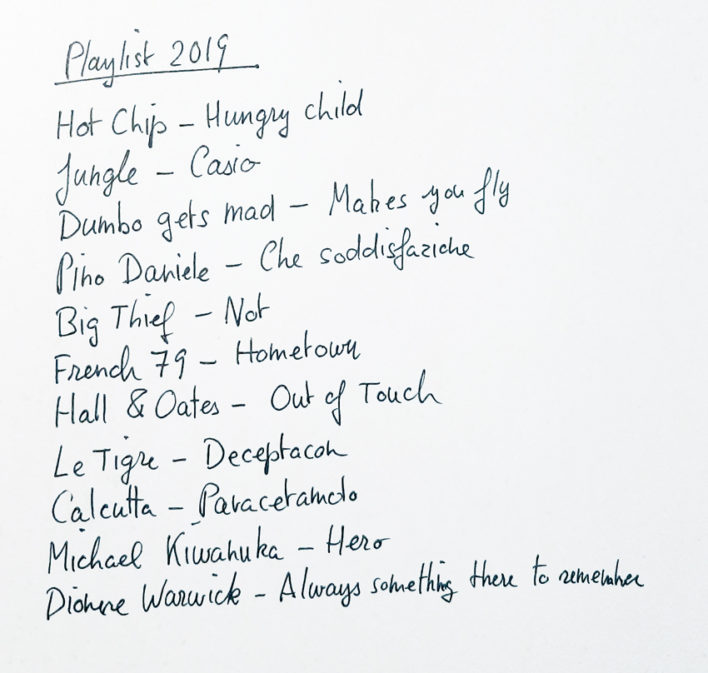 Playlist 2019
Hot Chip - Hungry child
Jungle - Casio
Dumbo gets mad - Makes you fly
Pino Daniele - Che soddisfaziche
Big Thief - Not
French 79 - Hometown
Hall & Oates - Out of Touch
Le Tigre - Deceptacon
Calcutta - Paracetamolo
Michael Kiwanuka - Hero
Dionne Warwick - Always something there to remember